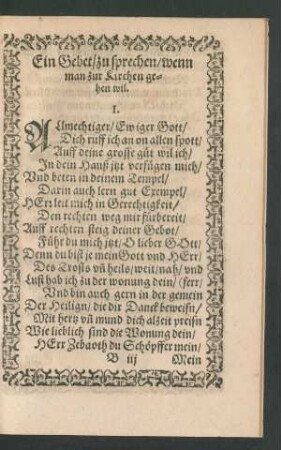 Ein Gebet/ zu sprechen/ wenn
man zur Kirchen ge-
hen wil.
I.
ALmechtiger/ Ewiger Gott/
Dich ruff ich an on allen spott/
Auff deine grosse güt wil ich/
In dein Hauß jtzt verfügen mich/
Vnd beten in deinem Tempel/
Darin auch lern gut Exempel/
HErr leit mich in Gerechtigkeit/
Den rechten weg mir fürbereit/
Auff rechten steig deiner Gebot/
Führ du mich jtzt/ O lieber GOtt/
Denn du bist je mein Gott vnd HErr/
Des Trosts vñ heils/ weit/ nah/ vnd
Lust hab ich zu der wonung dein/ (ferr/
Vnd bin auch gern in der gemein
Der Heilign/ die dir Danck beweisn/
Mit hertz vñ mund dich alzeit preisn
Wie lieblich sind die Wonung dein/
HErr Zebaoth du Schöpffer mein/
B iij Mein